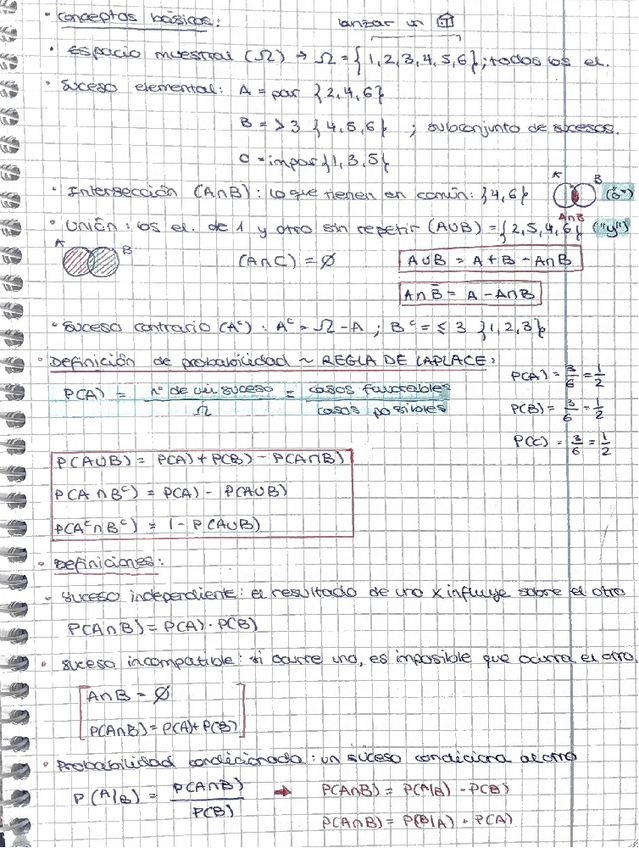 · Conceptos básicos: lanzar un
· Espacio muestral (Ω) → Ω = {1,2,3,4,5,6}; todos los el.
· Suceso elemental: A = par {2,4,6}
B = >3 {4,5,6} ; subconjunto de sucesos.
C = impar {1,3,5}
· Intersección (A∩B): lo que tienen en común: {4,6} A B ("o")
A∩B
· Unión: los el. de 1 y otro sin repetir (A∪B) = {2,5,4,6} ("y")
A B (A∩C) = ∅ A∪B = A + B - A∩B
A∩B̄ = A - A∩B
· Suceso contrario (Aᶜ): Aᶜ = Ω - A ; Bᶜ = ≤ 3 {1,2,3}
· Definición de probabilidad ~ REGLA DE LAPLACE:
P(A) = nº de mi suceso / Ω = casos favorables / casos posibles
P(A) = 3/6 = 1/2
P(B) = 3/6 = 1/2
P(C) = 3/6 = 1/2
P(A∪B) = P(A) + P(B) - P(A∩B)
P(A∩Bᶜ) = P(A) - P(A∪B)
P(Aᶜ∩Bᶜ) = 1 - P(A∪B)
· Definiciones:
- Suceso independiente: el resultado de uno x influye sobre el otro
P(A∩B) = P(A) · P(B)
· Suceso incompatible: si ocurre uno, es imposible que ocurra el otro.
A∩B = ∅
P(A∩B) = P(A) + P(B)
· Probabilidad condicionada: un suceso condiciona al otro
P(A/B) = P(A∩B) / P(B) → P(A∩B) = P(A/B) · P(B)
P(A∩B) = P(B/A) · P(A)